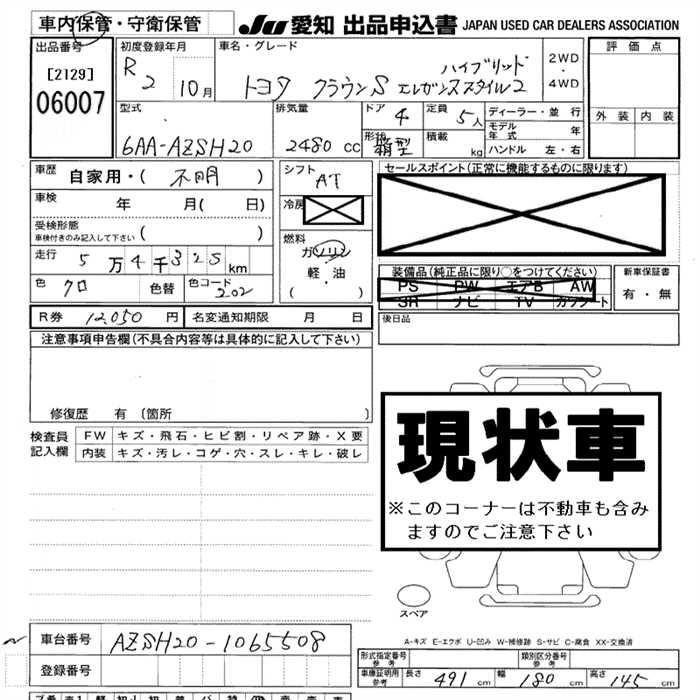 車内保管・守衛保管
JU 愛知 出品申込書 JAPAN USED CAR DEALERS ASSOCIATION
出品番号
[2129]
06007
初度登録年月
R 2 10月
車名・グレード
トヨタ クラウンS ハイブリッド エレガンススタイル2
2WD
・
4WD
評価点
外装 内装
型式
6AA-AZSH20
排気量
2480 cc
ドア 4
形状 箱型
定員 5人
積載 kg
ディーラー・並行
モデル年式 年
ハンドル 左・右
車歴 自家用・( 不明 )
車検 年 月( 日)
受検形態
車検付きのみ記入して下さい ( )
走行 5万4千325km
色 クロ 色替 色コード 202
シフト
AT
冷房
燃料
ガソリン
軽・油
( )
セールスポイント(正常に機能するものに限ります)
装備品(純正品に限り○をつけてください)
PS PW エアB AW
SR ナビ TV カワシート
新車保証書
有・無
R券 12,050 円 名変通知期限 月 日
後日品
注意事項申告欄(不具合内容等は具体的に記入して下さい)
修復歴 有 〔箇所 〕
検査員記入欄
FW キズ・飛石・ヒビ割・リペア跡・X要
内装 キズ・汚レ・コゲ・穴・スレ・キレ・破レ
現状車
※このコーナーは不動車も含み
ますのでご注意下さい
スペア
A-キズ E-エクボ U-凹み W-補修跡 S-サビ C-腐食 XX-交換済
車台番号 AZSH20-1065508
登録番号
形式指定番号 参考
類別区分番号 参考
車庫証明用 参考 長さ 491 cm 幅 180 cm 高さ 145 cm